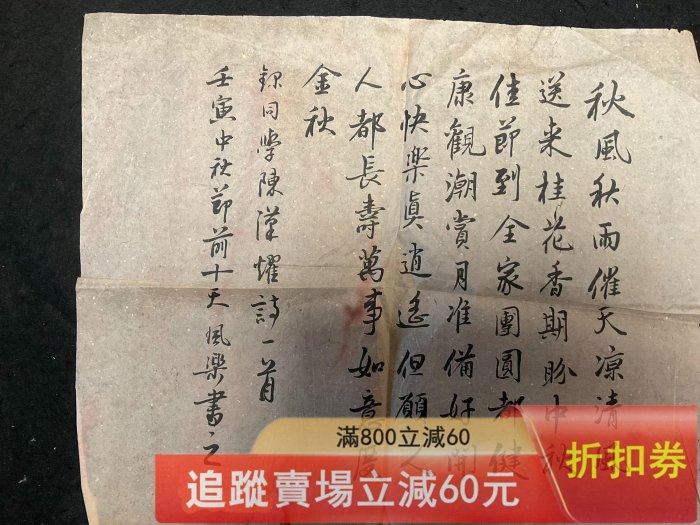 秋風秋雨催天凉清風
送来桂花香期盼中秋
佳節到全家團圓都健
康觀潮賞月准備好開
心快樂真逍遙但願人
人都長壽萬事如意度
金秋
錄同學陳漢耀詩一首
壬寅中秋節前十天風樂書之
滿800立減60
追蹤賣場立減60元
折扣券